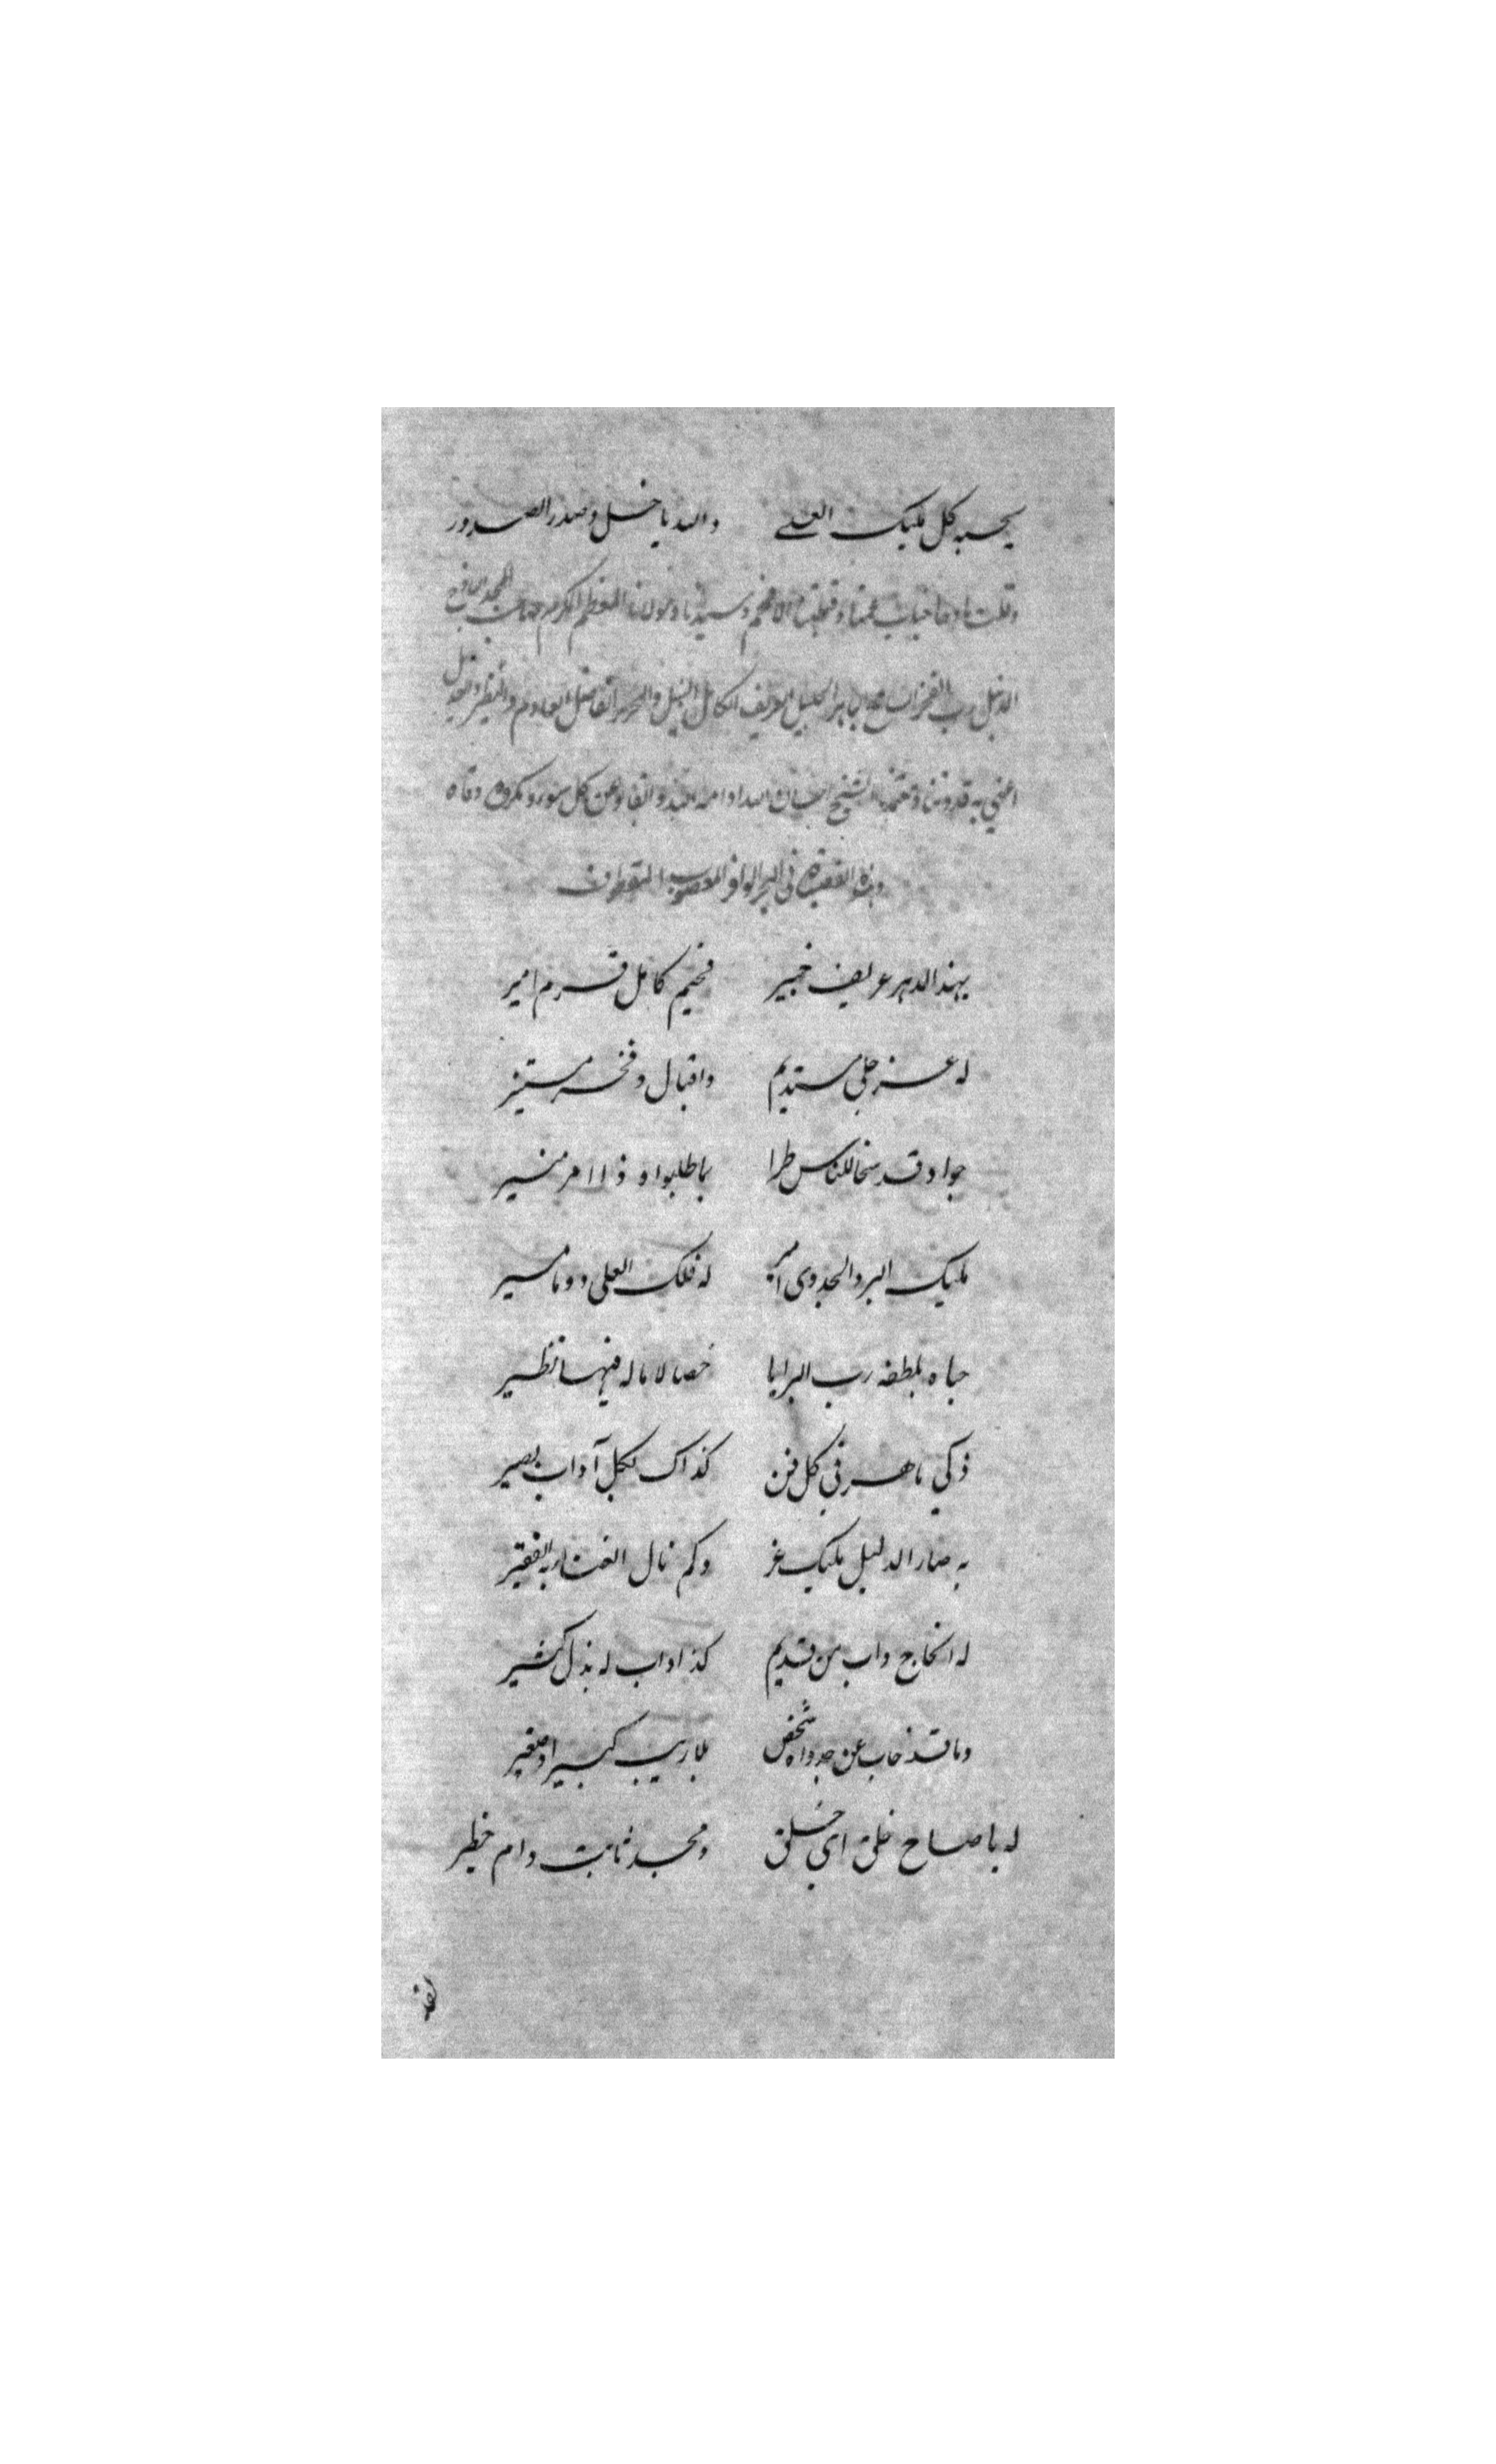 يحبه كل مليك العلي والله يا خل وصدر الصدور
وقلت مادحا جناب عمنا وقبلتنا الافخم وسيدنا ومولانا المعظم المكرم صاحب المجد الباذخ
رب الفخر الجليل العريف الكامل النبيل والنحرير الفاضل
اعني به قدوتنا الشيخ الله ادامه عن كل سوء ومكروه وقاه
وهذه القصيدة في البحر الوافر المعصوب المقطوف
بهذا الدهر عريف خبير فخيم كامل قرم امير
له عز جلي مستديم واقبال وفخر مستنير
جواد قد سخا للناس طرا بما طلبوا و ذا امر منير
مليك البر والجدوى له فلك العلى دوما مسير
حباه بلطفه رب البرايا خصالا ما له فيها نظير
ذكي ماهر في كل فن كذاك لكل آداب بصير
به صار الذليل مليك عز وكم نال الغناء به الفقير
له انجاح داب من قديم كذا داب له بذل كثير
وما قد خاب عن جدواه شخص بلا ريب كبير او صغير
له يا صاح خلق اي خلق ومجد ثابت دام خطير